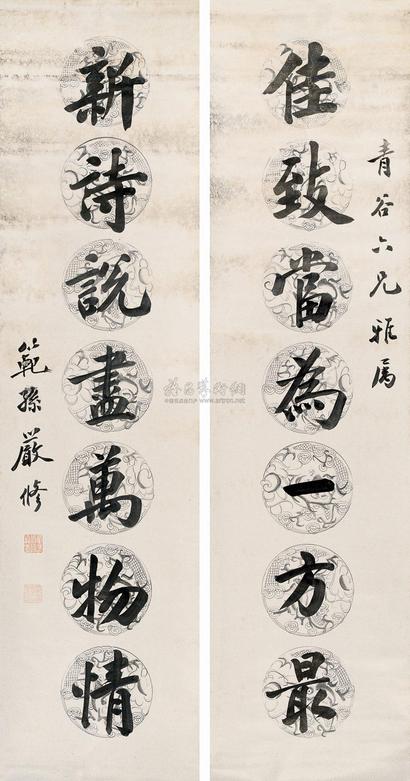 青谷六兄雅属
佳致當為一方最
新詩說盡萬物情
範孫嚴修